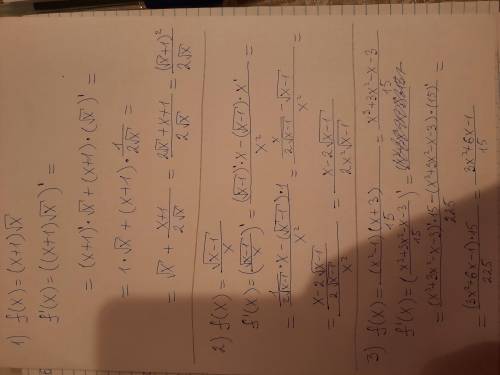 1) f(x) = (x+1)√x
f'(x) = ((x+1)√x)' =
= (x+1)'·√x + (x+1)·(√x)' =
= 1·√x + (x+1)·1/(2√x) =
= √x + (x+1)/(2√x) = (2√x+x+1)/(2√x) = (√x+1)²/(2√x)
2) f(x) = √(x-1)/x
f'(x) = (√(x-1)/x)' = ((√(x-1))'·x - (√(x-1))·x')/x² =
= (1/(2√(x-1))·x - (√(x-1))·1)/x² = (x/(2√(x-1)) - √(x-1))/x² =
= ((x-2√(x-1))/(2√(x-1)))/x² = (x-2√(x-1))/(2x²√(x-1))
3) f(x) = (x²-1)(x+3)/15 = (x³+3x²-x-3)/15
f'(x) = ((x³+3x²-x-3)/15)' =
= ((x³+3x²-x-3)'·15-(x³+3x²-x-3)·(15)')/225 =
= (3x²+6x-1)·15/225 = (3x²+6x-1)/15